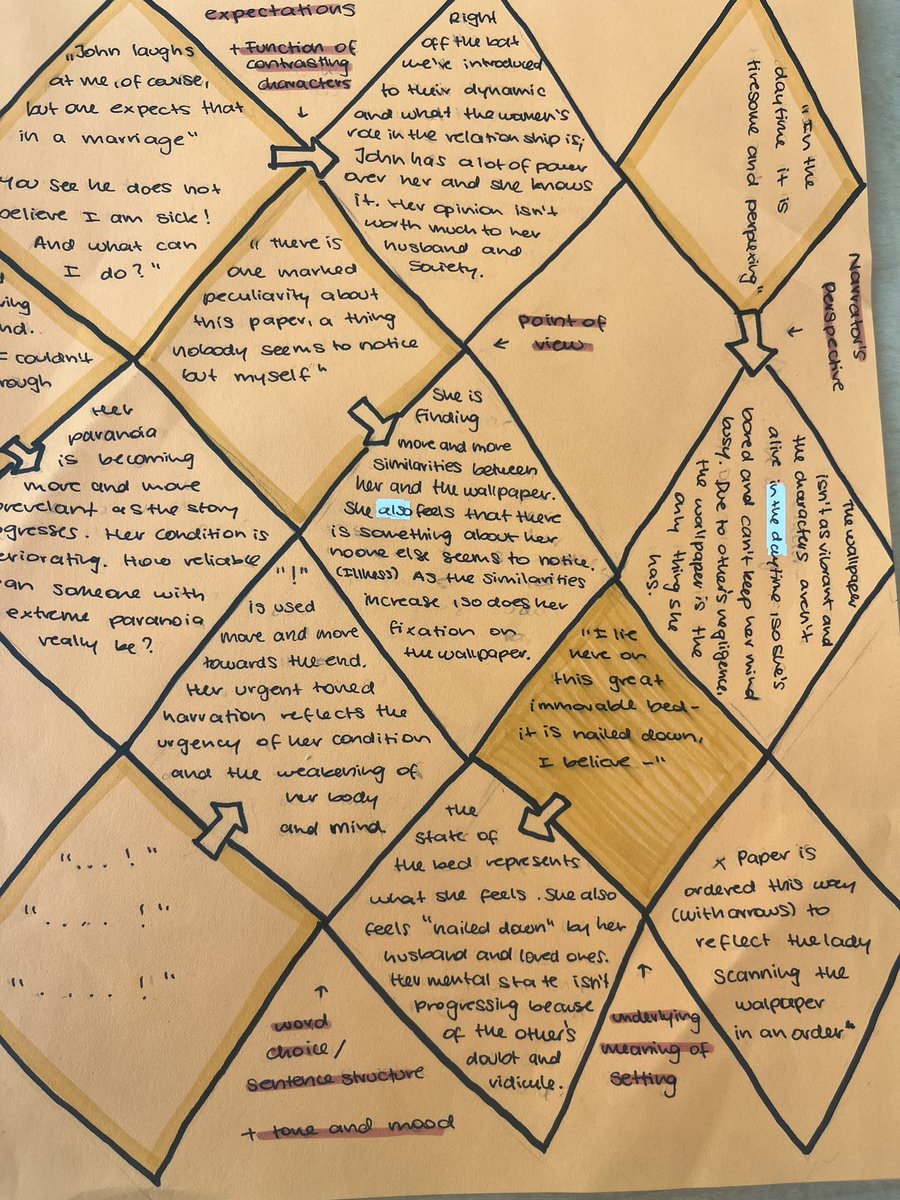 expectations
+ Function of
contrasting
characters
"John laughs
at me, of course,
but one expects that
in a marriage"
You see he does not
believe I am sick!
And what can
I do?"
Right
off the bat
we've introduced
to their dynamic
and what the women's
role in the relationship is;
John has a lot of power
over her and she knows
it. Her opinion isn't
worth much to her
husband and
society.
"In the
daytime it is
tiresome and perplexing"
Narrator's
perspective
"there is
one marked
peculiarity about
this paper, a thing
nobody seems to notice
but myself"
point of
view
nd.
couldn't
rough
Her
paranoia
is becoming
more and more
prevelant as the story
gresses. Her condition is
eriorating. How reliable
an someone with
extreme paranoia
really be?
She is
finding
more and more
similarities between
her and the wallpaper.
She also feels that there
is something about her
noone else seems to notice.
(Illness) As the similarities
increase, so does her
fixation on
the wallpaper.
The wallpaper
isn't as vibrant and
the characters aren't
alive in the daytime, so she's
bored and can't keep her mind
busy. Due to other's negligence,
the wallpaper is the
only thing she
has.
"!"
is used
more and more
towards the end.
Her urgent toned
narration reflects the
urgency of her condition
and the weakening of
her body
and mind.
"I lie
here on
this great
immovable bed-
it is nailed down,
I believe -"
the
state of
the bed represents
what she feels. She also
feels "nailed down" by her
husband and loved ones.
Her mental state isn't
progressing because
of the other's
doubt and
vidicule.
x Paper is
ordered this way
(with arrows) to
reflect the lady
scanning the
walpaper
in an order"
"... ! "
"..... ! "
"..... ! "
word
choice/
sentence structure
+ tone and mood
underlying
meaning of
setting